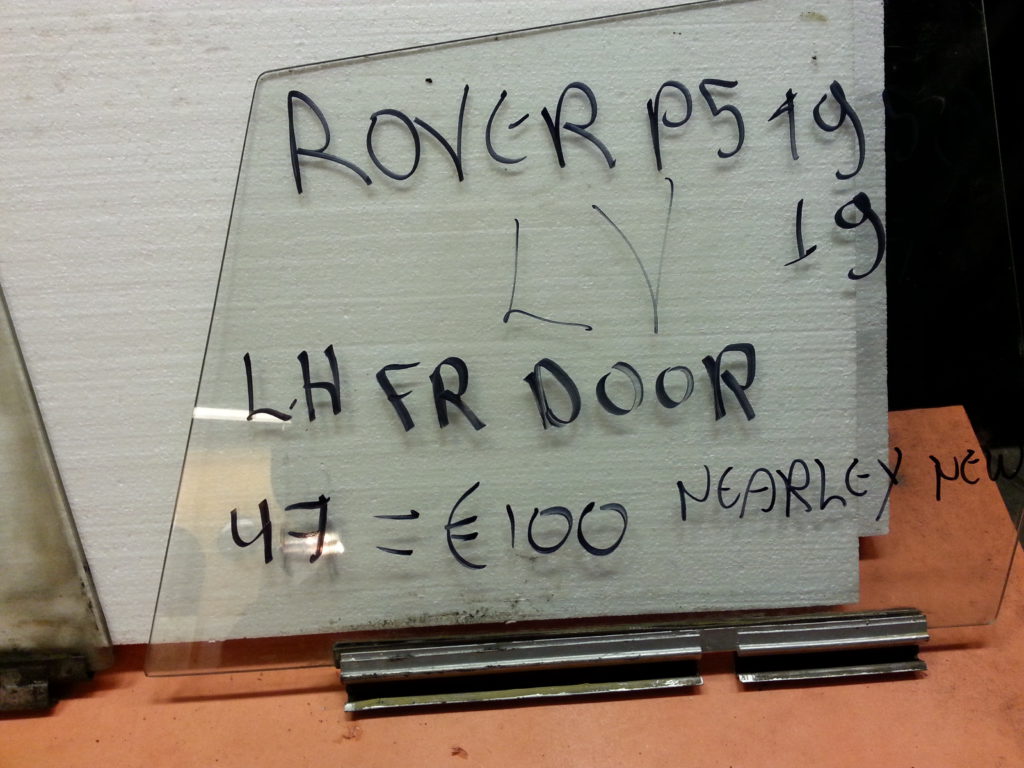 ROVER P5 19
19
LV
LH FR DOOR
47 = €100 NEARLEY NEW